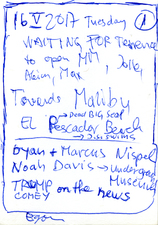 16 V 2017 Tuesday 1
WAITING FOR Terrence
to open MM, Jolie,
Asim, Max
Towards Malibu
EL → Dead BIG Seal
Pescador Beach
→ J. is swims
byan + Marcus Nispel
Noah Davis → Underground
Museum
TRUMP on the news
COMEY